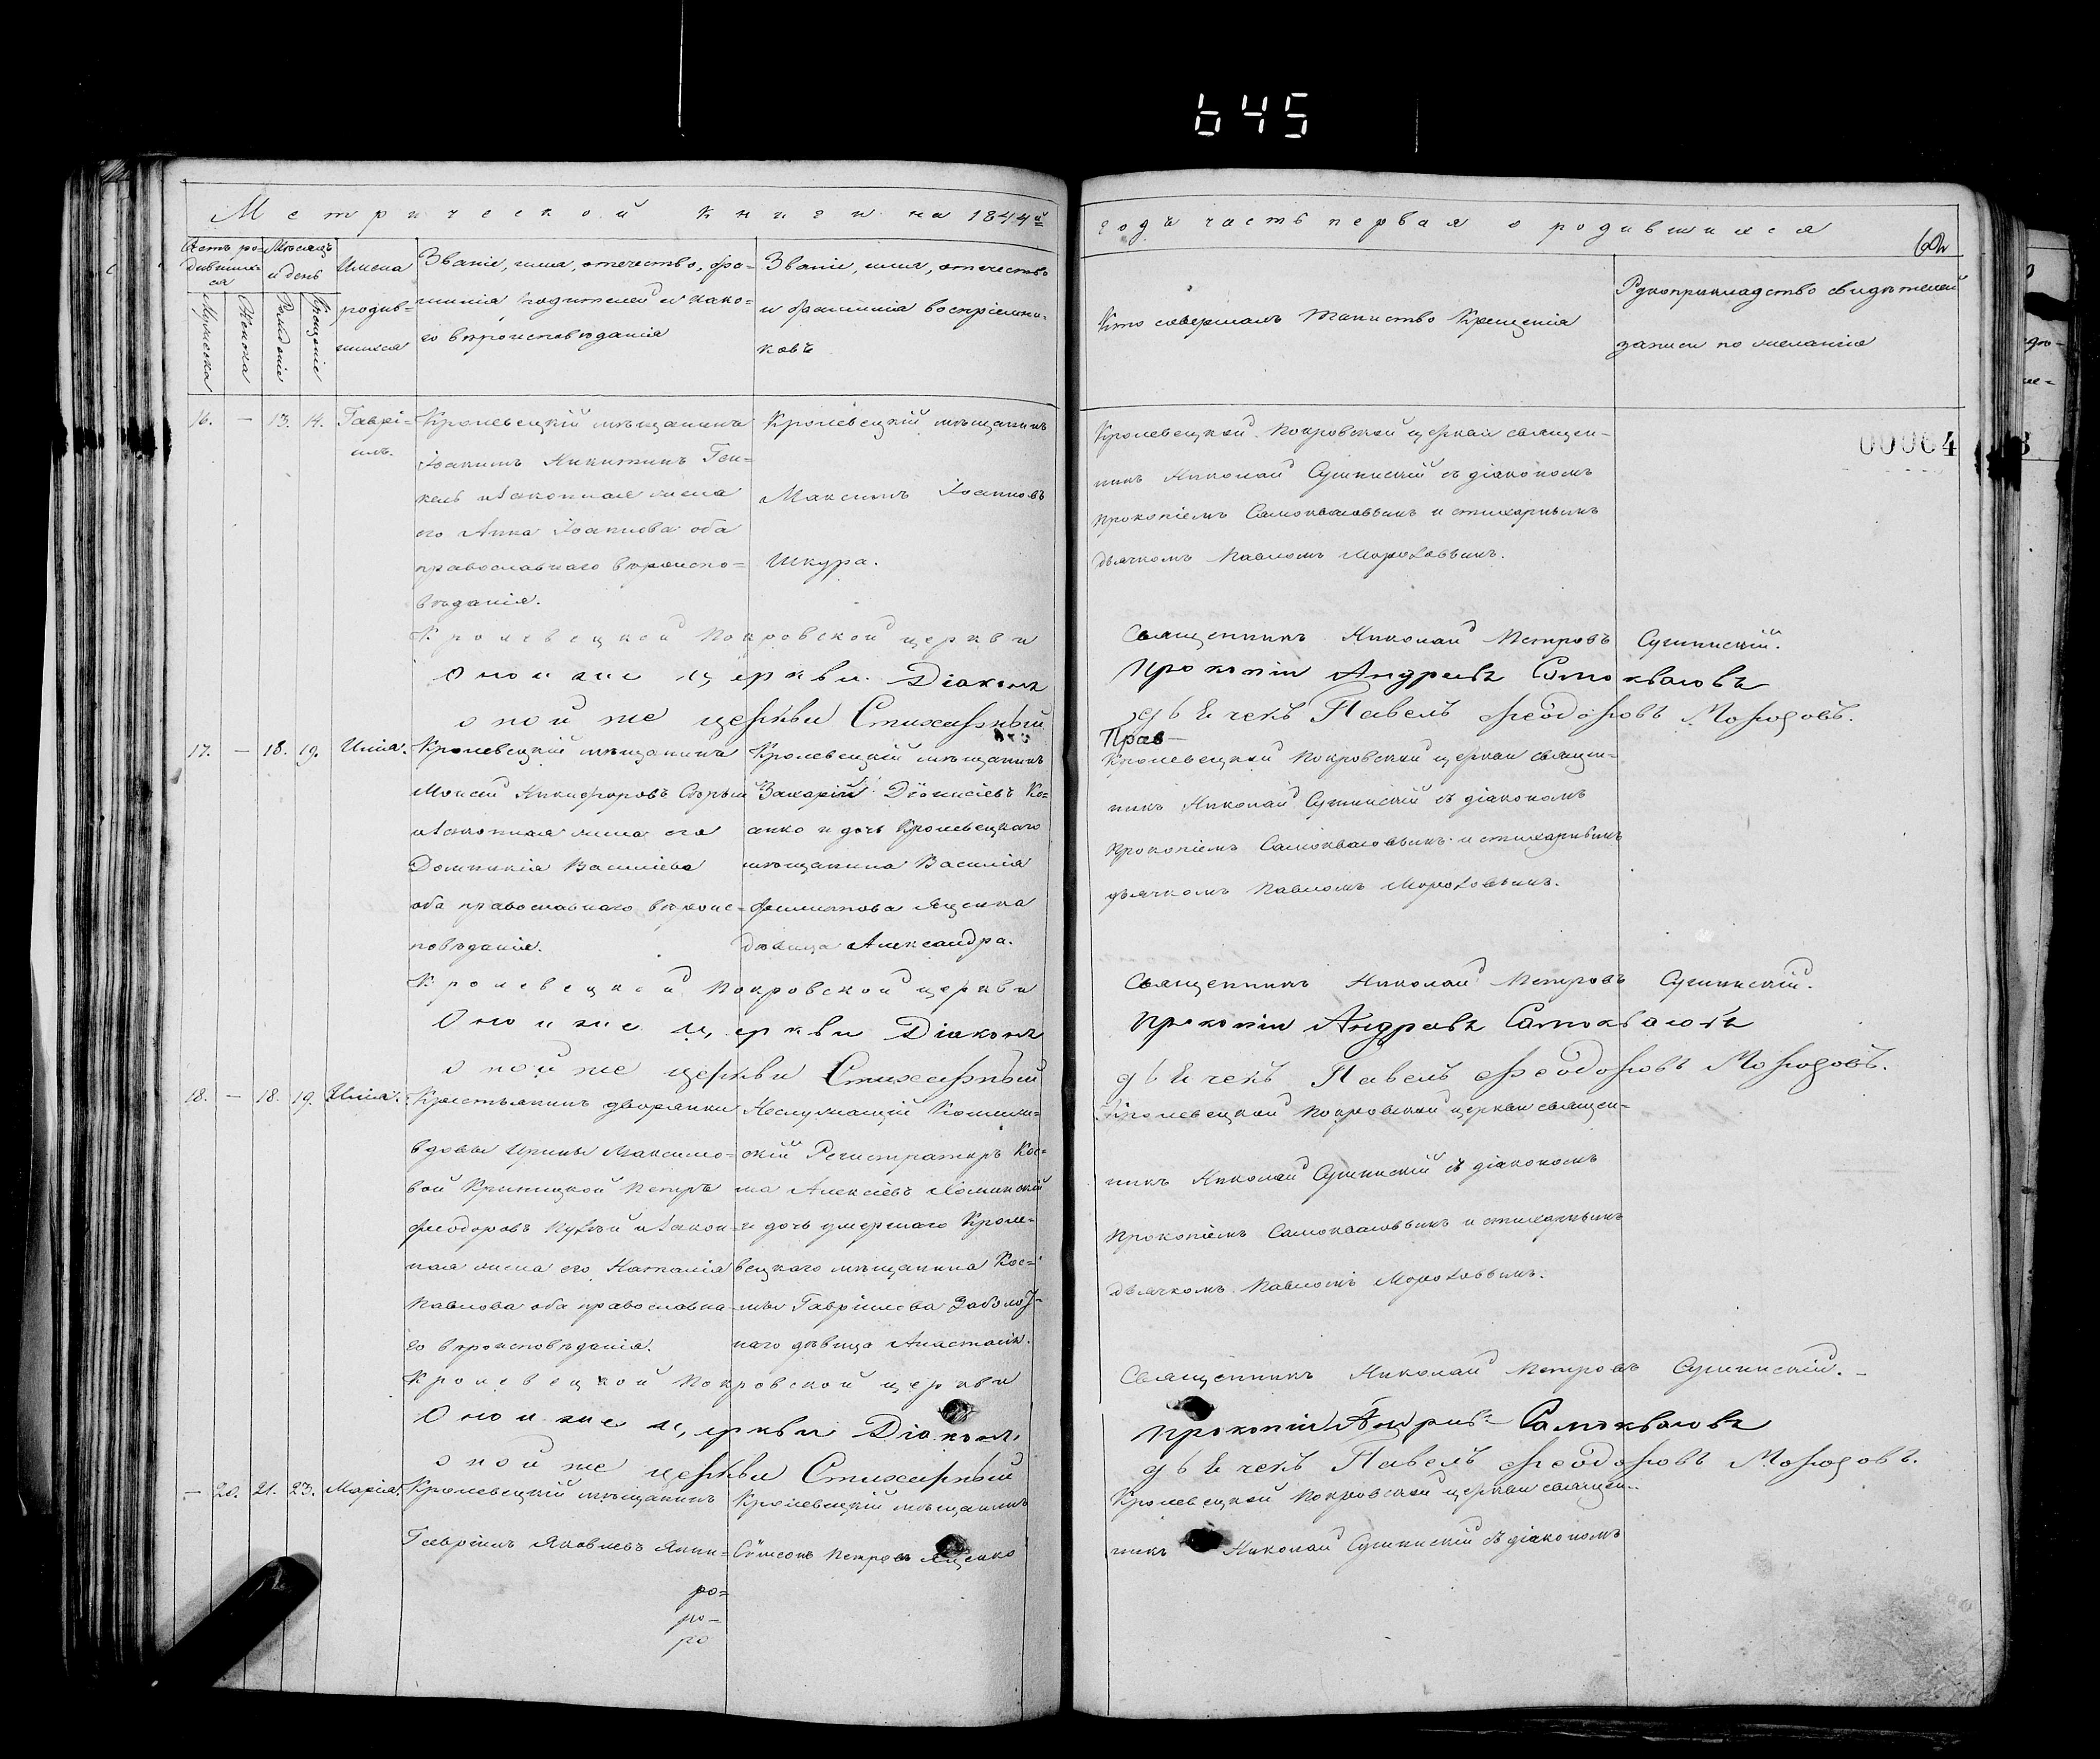 645
Метрической книги на 1844й
годъ часть первая о родившихся
Счетъ ро-
дивших-
ся
Мужеска
Женска
Мѣсяцъ
и день
Рожденіе
Крещеніе
Имена
родив-
шихся
Званіе, имя, отечество, фа=
милія родителей и како=
го вѣроисповѣданія
Званіе, имя, отечество
и фамилія воспріемни-
ковъ
Кто совершалъ таинство Крещенія
Рукоприкладство свидѣтелей
записи по желанію
00064
16. — 13. 14. Гаврі=
илъ.
Кролевецкій мѣщанинъ
Іоакимъ Никитинъ Ген=
кель и законная жена
его Анна Іоаннова оба
православнаго вѣроиспо=
вѣданія.
Кролевецкій мѣщанинъ
Максимъ Іоанновъ
Шкура.
Кролевецкой Покровской церкви священ-
никъ Николай Сушинскій съ діакономъ
Прокопіемъ Самоквасовымъ и стихарнымъ
дьячкомъ Павломъ Мороховымъ.
Кролевецкой Покровской церкви Священникъ Николай Петровъ Сушинскій.
Оной же церкви Діаконъ Прокопій Андреевъ Самоквасовъ
оной же церкви Стихарный дьячекъ Павелъ Феодоровъ
17. — 18. 19. Илія.
Кролевецкій мѣщанинъ
Моисей Никифоровъ
и законная жена его
Домникія Василіева
оба православнаго вѣроис=
повѣданія.
Кролевецкій мѣщанинъ
Захарій Діонисіевъ Ко=
анко и дочь Кролевецкаго
мѣщанина Василія
Филиппова Яценка
дѣвица Александра.
Прав-
Кролевецкой Покровской церкви священ-
никъ Николай Сушинскій съ діакономъ
Прокопіемъ Самоквасовымъ и стихарнымъ
дьячкомъ Павломъ Мороховымъ.
Кролевецкой Покровской церкви Священникъ Николай Петровъ Сушинскій.
Оной же церкви Діаконъ Прокопій Андреевъ Самоквасовъ
оной же церкви Стихарный дьячекъ Павелъ Феодоровъ
18. — 18. 19. Илія.
Крестьянинъ дворянки
вдовы Ирины Максимо=
вой Криницкой Петръ
Феодоровъ и закон=
ная жена его Наталія
Павлова оба православна=
го вѣроисповѣданія.
Неслужащій Коллеж=
скій Регистраторъ Кос=
ма Алексіевъ
и дочь умершаго Кроле=
вецкаго мѣщанина Кос=
мы Гавріилова Заболот=
наго дѣвица Анастасія.
Кролевецкой Покровской церкви священ-
никъ Николай Сушинскій съ діакономъ
Прокопіемъ Самоквасовымъ и стихарнымъ
дьячкомъ Павломъ Мороховымъ.
Кролевецкой Покровской церкви Священникъ Николай Петровъ Сушинскій.-
Оной же церкви Діаконъ Прокопій Андреевъ Самоквасовъ
оной же церкви Стихарный дьячекъ Павелъ Феодоровъ
— 20. 21. 23. Марія.
Кролевецкій мѣщанинъ
Гавріилъ Яковлевъ
ро=
ро-
ро
Кролевецкій мѣщанинъ
Сѵмеонъ Петровъ Яценко
Кролевецкой Покровской церкви священ-
никъ Николай Сушинскій съ діакономъ